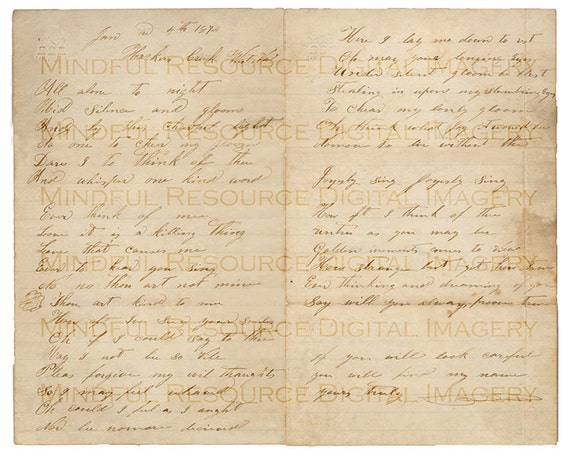 Jan 4th 1874
Creek
All alone to night
Mid Silence and gloom
And by this light
No one to cheer my room
Dare I to think of thee
And whisper one kind word
Ever think of me
Love it is a killing thing
Love that causes me
Ever to hear you Sing
No no thou art not mine
Thou art kind to me
How oft I see your Smile
Oh if I could Say to thee
May I not be So Vile
Pleas forgive my evil thoughts
So I may feel
Oh could I feel as I aught
Nor be nomore decieved
Here I lay me down to rest
Oh may your
Under Silent gloom
Stealing in upon my
To Clear my gloom
Oh think what
to be without thee
Joyfuly Sing Joyfuly Sing
How oft I think of thee
untrue as you may be
Golden moments
How Strange but yet true
Ever thinking and dreaming of you
Say will you always prove true
if you will look careful
you will find my name
yours truly
MINDFUL RESOURCE DIGITAL IMAGERY
MINDFUL RESOURCE DIGITAL IMAGERY
MINDFUL RESOURCE DIGITAL IMAGERY
MINDFUL RESOURCE DIGITAL IMAGERY
MINDFUL RESOURCE DIGITAL IMAGERY
MINDFUL RESOURCE DIGITAL IMAGERY